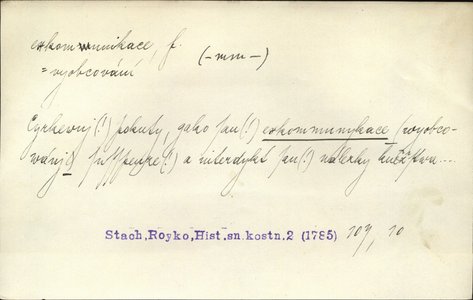 exkommunikace, f. (-mm-)
= vyobcování
Cyrkevnj(!) pokuty, gako sau(!) exkommunykace (wyobco-
wánj), suspense(!) a interdykt sau(!) nálezky kněžstva....
Stach,Royko,Hist.sn.kostn.2 (1785) 107, 10